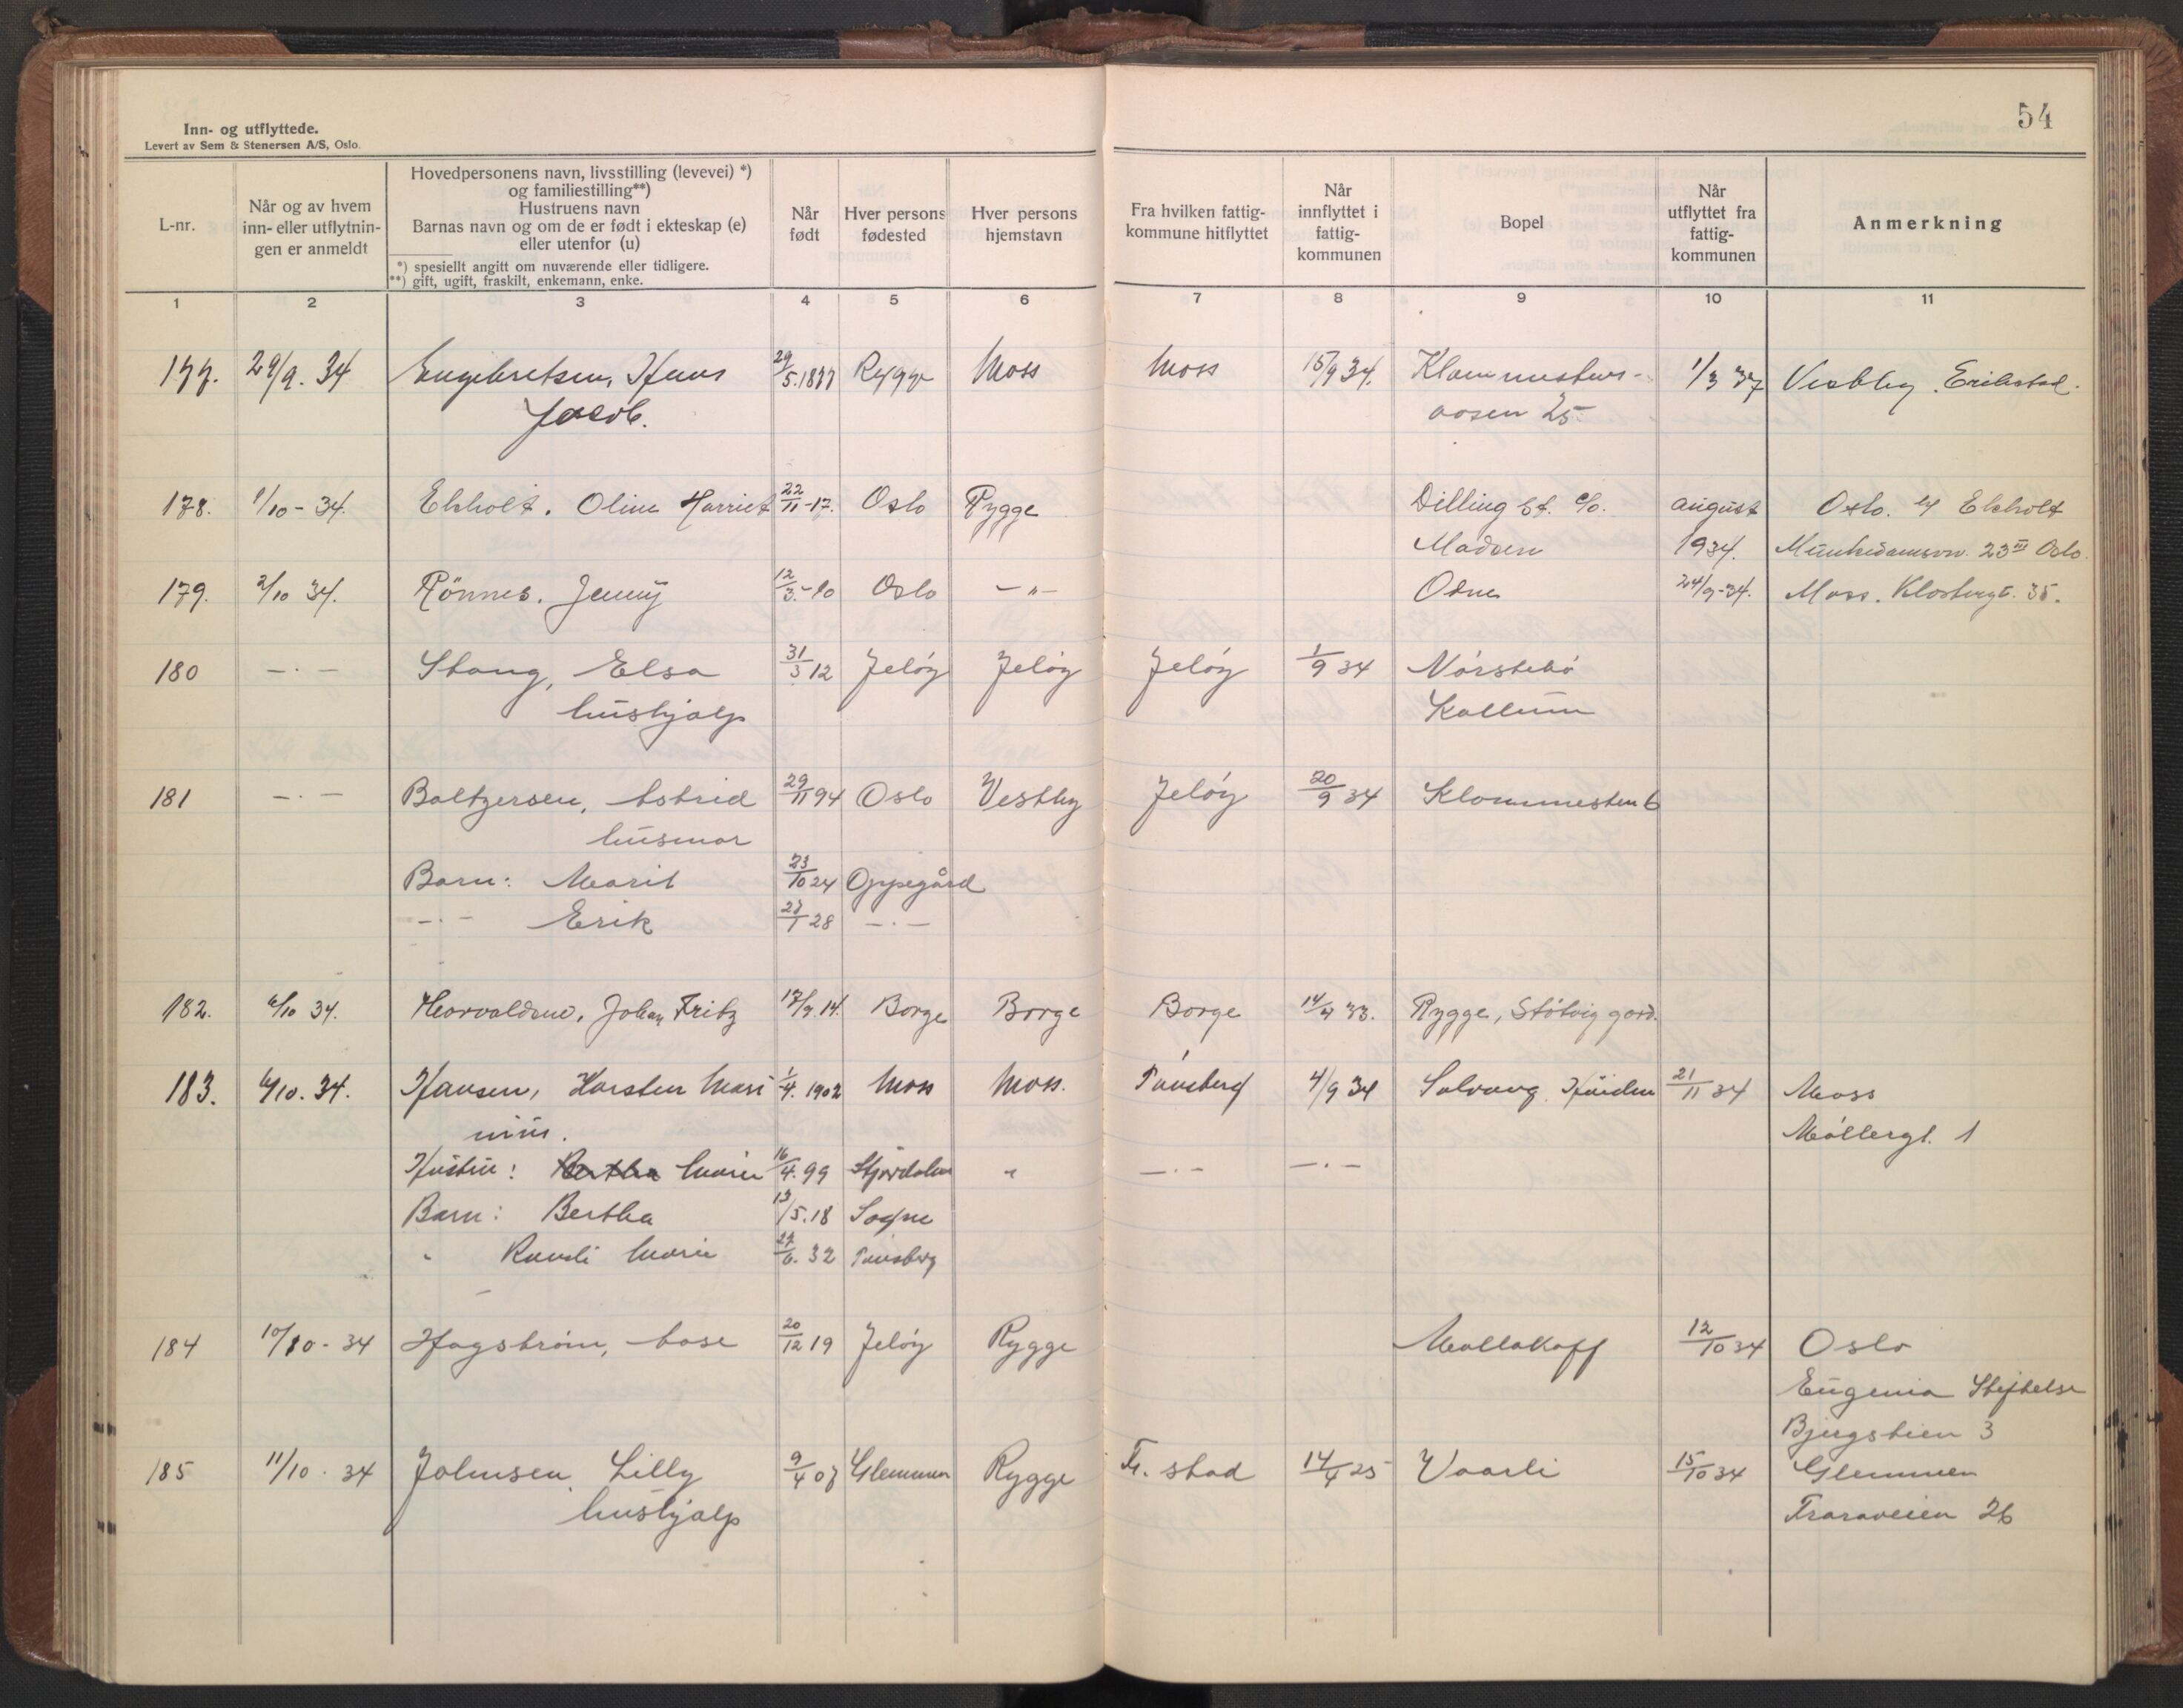 54
Inn- og utflyttede.
Levert av Sem & Stenersen A/S, Oslo.
L-nr.
Når og av hvem
inn- eller utflytnin-
gen er anmeldt
Hovedpersonens navn, livsstilling (levevei) *)
og familiestilling**)
Hustruens navn
Barnas navn og om de er født i ekteskap (e)
eller utenfor (u)
*) spesiellt angitt om nuværende eller tidligere.
**) gift, ugift, fraskilt, enkemann, enke.
Når
født
Hver persons
fødested
Hver persons
hjemstavn
Fra hvilken fattig-
kommune hitflyttet
Når
innflyttet i
fattig-
kommunen
Bopel
Når
utflyttet fra
fattig-
kommunen
Anmerkning
1 2 3 4 5 6 7 8 9 10 11
177. 29/9. 34 Engebretsen, Hans 29/5.1877 Rygge Moss Moss 15/9 34. Klommestens- 1/3 37 Vestby. Erikstad.
Jacob. aasen 25.
178. 1/10 - 34. Ekholt. Oline Harriet 22/11-17. Oslo Rygge Dilling st. c/o. august Oslo. Ekholt
Madsen 1934. Munkedamsvn. 23 III Oslo.
179. 2/10 34. Rönnes. Jenny 12/3.-10 Oslo - " - Osne 24/9-34. Moss. Klostergt. 35.
180 - . - Stang, Elsa 31/3 12 Jeløy Jeløy Jeløy 1/9 34 Nørstebø
hushjalp Kallum
181 - . - Baltzersen, Astrid 29/11 94 Oslo Vestby Jeløy 20/9 34 Klommesten 6
husmor
Barn: Marit 23/10 24 Oppegård
- . - Erik 27/1 28 - . -
182. 6/10 34. Horvaldsen, Johan Fritz 17/7.14. Borge Borge Borge 14/4 33. Rygge, Støtvig gård.
183. 6/10. 34. Hansen, Karsten Mari 1/4. 1902 Moss Moss. Tønsberg 4/9 34 Solvang. Halden 21/11 34 Moss
nius. Møllergt. 1
Hustru: Bertha Marie 16/4. 99 Stjørdalen " - . - - . -
Barn: Bertha 13/5.18 Sogne
" Randi Marie 27/6. 32 Tønsberg
184 10/10 - 34 Hagstrøm, Aase 20/12 19 Jeløy Rygge Mallakoff 12/10 34 Oslo
Eugenia Stiftelse
Bjergstien 3
185 11/10 . 34 Johnsen, Lilly 9/4 07 Glemmen Rygge Fr. stad 14/4 25 Vaarli 15/10 34 Glemmen
hushjalp Traraveien 26